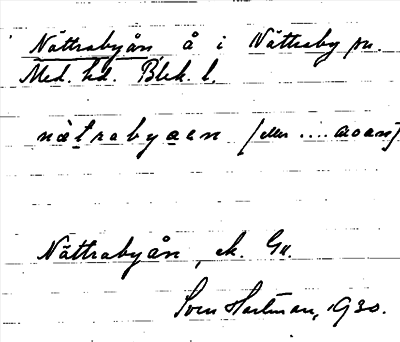 Nättrabyån å i Nättraby sn.
Med. hd. Blek. l.
nætrabyaen (eller .... åoan)
Nättrabyån, ek. Gu.
Sven Hartman, 1930.